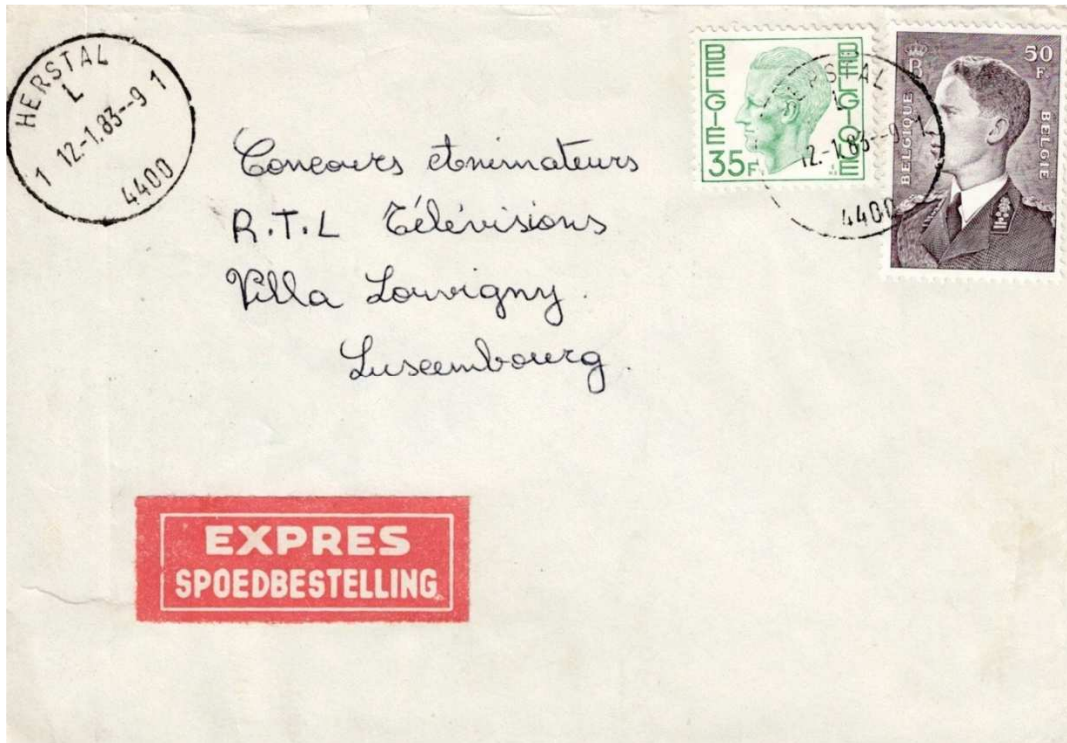 HERSTAL
L
12.-1.83--9
1 1
4400
BELGIE BELGIQUE
35F
HERSTAL
L
12.-1.83--9 1
4400
50
F
BELGIQUE BELGIE
Concours Animateurs
R.T.L Télévisions
Villa Louvigny.
Luxembourg.
EXPRES
SPOEDBESTELLING